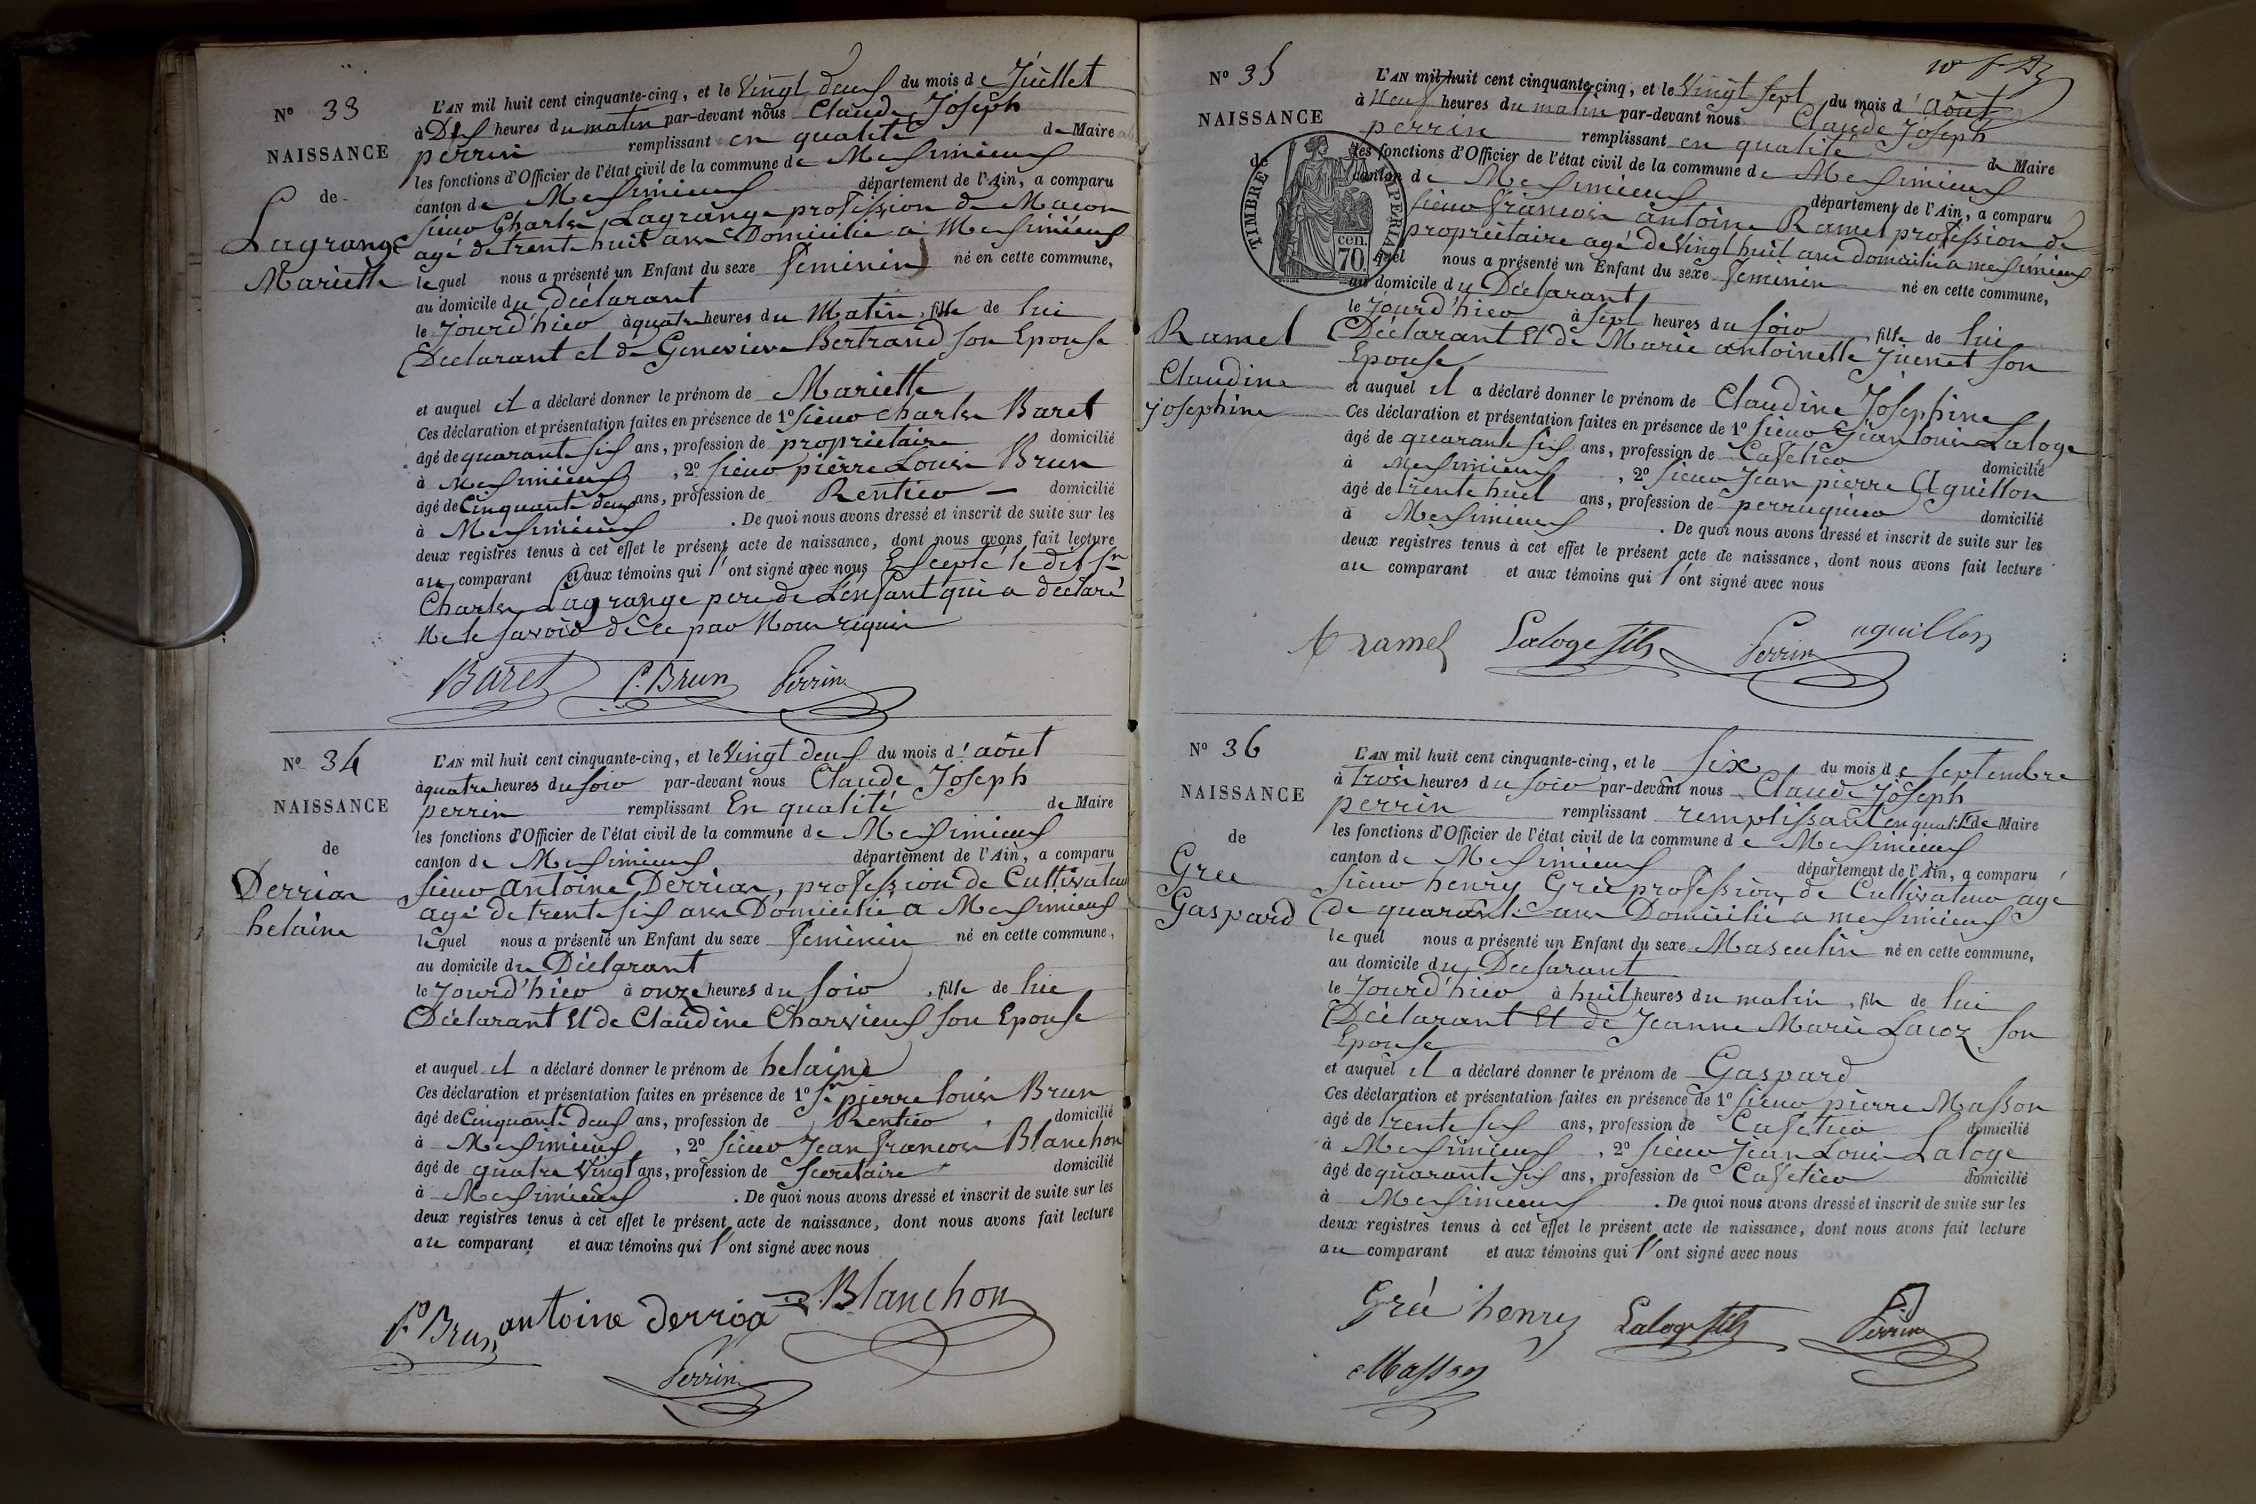 N° 33
NAISSANCE
de
Lagrange
Mariette
L'AN mil huit cent cinquante-cinq, et le Vingt deux du mois de Juillet
à Dix heures du matin par-devant nous Claude Joseph
perrin remplissant en qualité de Maire
les fonctions d'Officier de l'état civil de la commune de Meximieux
canton de Meximieux département de l'Ain, a comparu
sieur Charles Lagrange profession de Macon
agé de trente huit ans Domicilié a Meximieux
lequel nous a présenté un Enfant du sexe feminin né en cette commune,
au domicile du Déclarant
le jourd'hier à quatre heures du Matin, fille de lui
Déclarant et de Genevieve Bertrand son Epouse
et auquel il a déclaré donner le prénom de Mariette
Ces déclaration et présentation faites en présence de 1° sieur charles Baret
âgé de quarante six ans, profession de propriétaire domicilié
à Meximieux, 2° sieur pierre Louis Brun
âgé de Cinquante deux ans, profession de Rentier — domicilié
à Meximieux. De quoi nous avons dressé et inscrit de suite sur les
deux registres tenus à cet effet le présent acte de naissance, dont nous avons fait lecture
au comparant et aux témoins qui l'ont signé avec nous Excepté le dit sr
Charles Lagrange pere de L'enfant qui a déclaré
Ne le savoir de ce par Nous réquis
Baret P. Brun Perrin
N° 34
NAISSANCE
de
Derrias
helaine
L'AN mil huit cent cinquante-cinq, et le Vingt deux du mois d'aôut
à quatre heures du soir par-devant nous Claude Joseph
perrin remplissant En qualité de Maire
les fonctions d'Officier de l'état civil de la commune de Meximieux
canton de Meximieux département de l'Ain, a comparu
sieur antoine Derrias, profession de Cultivateur
agé de trente six ans Domicilié a Meximieux
lequel nous a présenté un Enfant du sexe feminin né en cette commune,
au domicile du Déclarant
le jourd'hier à onze heures du soir, fille de lui
Déclarant Et de Claudine Charvieux son Epouse
et auquel il a déclaré donner le prénom de helaine
Ces déclaration et présentation faites en présence de 1° sr pierre louis Brun
âgé de Cinquante deux ans, profession de Rentier domicilié
à Meximieux, 2° sieur Jean francois Blanchon
âgé de quatre Vingt ans, profession de Secretaire domicilié
à Meximieux. De quoi nous avons dressé et inscrit de suite sur les
deux registres tenus à cet effet le présent acte de naissance, dont nous avons fait lecture
au comparant et aux témoins qui l'ont signé avec nous
P. Brun antoine derria Blanchon
Perrin
N° 35
NAISSANCE
de
TIMBRE IMPERIAL
70 cen.
Ramel
Claudine
josephine
L'AN mil huit cent cinquante-cinq, et le Vingt sept du mois d'aôut
à Neuf heures du matin par-devant nous Claude Joseph
perrin remplissant en qualité de Maire
les fonctions d'Officier de l'état civil de la commune de Meximieux
canton de Meximieux département de l'Ain, a comparu
sieur francois antoine Ramel profession de
propriétaire agé de Vingt huit ans domicilié a meximieux
lequel nous a présenté un Enfant du sexe feminin né en cette commune,
au domicile du Déclarant
le jourd'hier à sept heures du soir fille de lui
Déclarant Et de Marie antoinette Juenet son
Epouse
et auquel il a déclaré donner le prénom de Claudine Josephine
Ces déclaration et présentation faites en présence de 1° sieur Jean louis Laloge
âgé de quarante six ans, profession de Cafetier domicilié
à Meximieux, 2° sieur Jean pierre Aguillon
âgé de trente huit ans, profession de perruquier domicilié
à Meximieux. De quoi nous avons dressé et inscrit de suite sur les
deux registres tenus à cet effet le présent acte de naissance, dont nous avons fait lecture
au comparant et aux témoins qui l'ont signé avec nous
ramel Laloge fils Perrin aguillon
N° 36
NAISSANCE
de
Grée
Gaspard
L'AN mil huit cent cinquante-cinq, et le six du mois de septembre
à trois heures du soir par-devant nous Claude Joseph
perrin remplissant remplissant en qualité de Maire
les fonctions d'Officier de l'état civil de la commune de Meximieux
canton de Meximieux département de l'Ain, a comparu
sieur henry Grée profession de Cultivateur agé
de quarante ans Domicilié a meximieux
lequel nous a présenté un Enfant du sexe Masculin né en cette commune,
au domicile du Declarant
le jourd'hier à huit heures du matin, fils de lui
Déclarant Et de Jeanne Marie Lacoz son
Epouse
et auquel il a déclaré donner le prénom de Gaspard
Ces déclaration et présentation faites en présence de 1° sieur pierre Masson
âgé de trente six ans, profession de Cafetier domicilié
à Meximieux, 2° sieur Jean Louis Laloge
âgé de quarante six ans, profession de Cafetier domicilié
à Meximieux. De quoi nous avons dressé et inscrit de suite sur les
deux registres tenus à cet effet le présent acte de naissance, dont nous avons fait lecture
au comparant et aux témoins qui l'ont signé avec nous
Grée henry Laloge fils Perrin
Masson